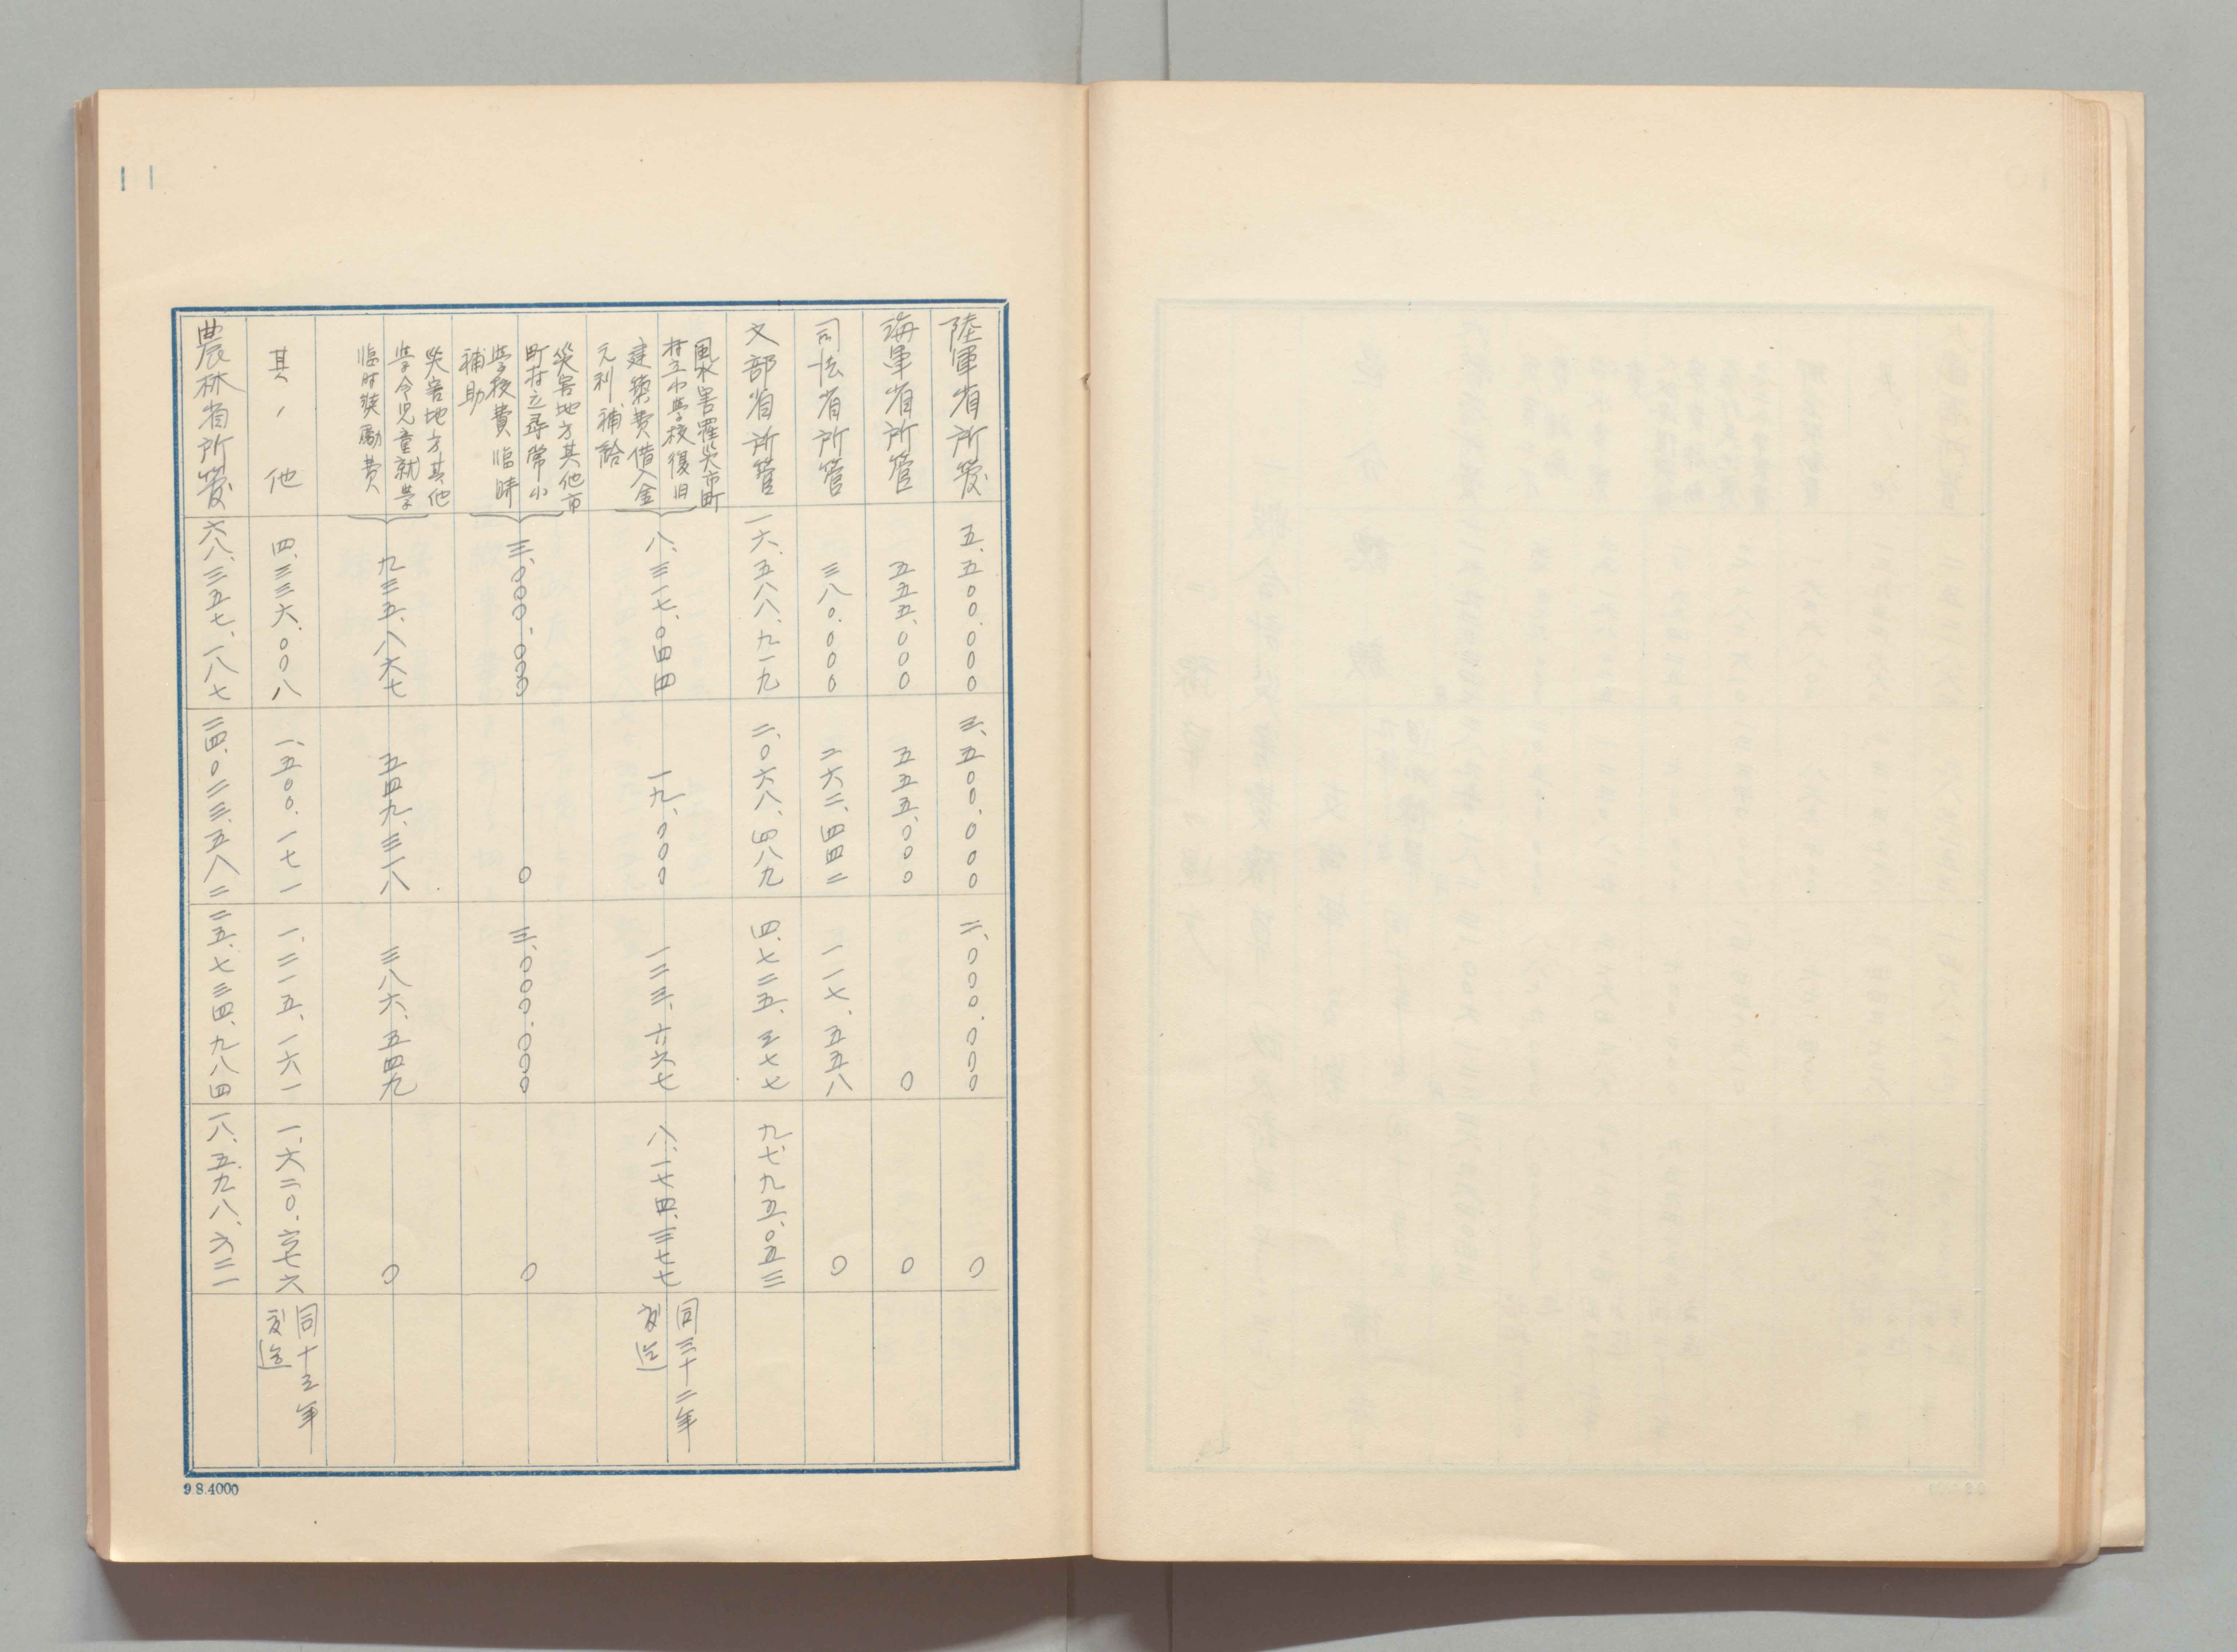 11
陸軍省所管 五.五〇〇.〇〇〇 三.五〇〇.〇〇〇 二.〇〇〇.〇〇〇 〇
海軍省所管 五五五.〇〇〇 五五五.〇〇〇 〇 〇
司法省所管 三八〇.〇〇〇 二六二.四四二 一一七.五五八 〇
文部省所管 一六.五八八.九一九 二.〇六八.四八九 四.七二五.三七七 九.七九五.〇五三
風水害罹災市町
村立小学校復旧
建築費借入金
元利補給
八.三一七.〇四四 一九.〇〇〇 一二三.六六七 八.一七四.三七七
同三十二年
迄
災害地方其他市
町村立尋常小
学校費臨時
補助
三.〇〇〇.〇〇〇 〇 三.〇〇〇.〇〇〇 〇
災害地方其他
学令児童就学
臨時奨励費
九三五.八六七 五四九.三一八 三八六.五四九 〇
其ノ他 四.三三六.〇〇八 一.五〇〇.一七一 一.二一五.一六一 一.六二〇.六七六
同十三年
迄
農林省所管 六八.三五七.一八七 二四.〇二三.五八二 二五.七三四.九八四 一八.五九八.六二一
9.8.4000